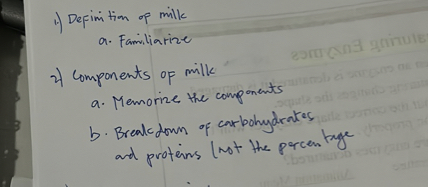 1) Definition of milk
a. Familiarize
2) Components of milk
a. Memorize the components
b. Breakdown of carbohydrates
and proteins (not the percentage